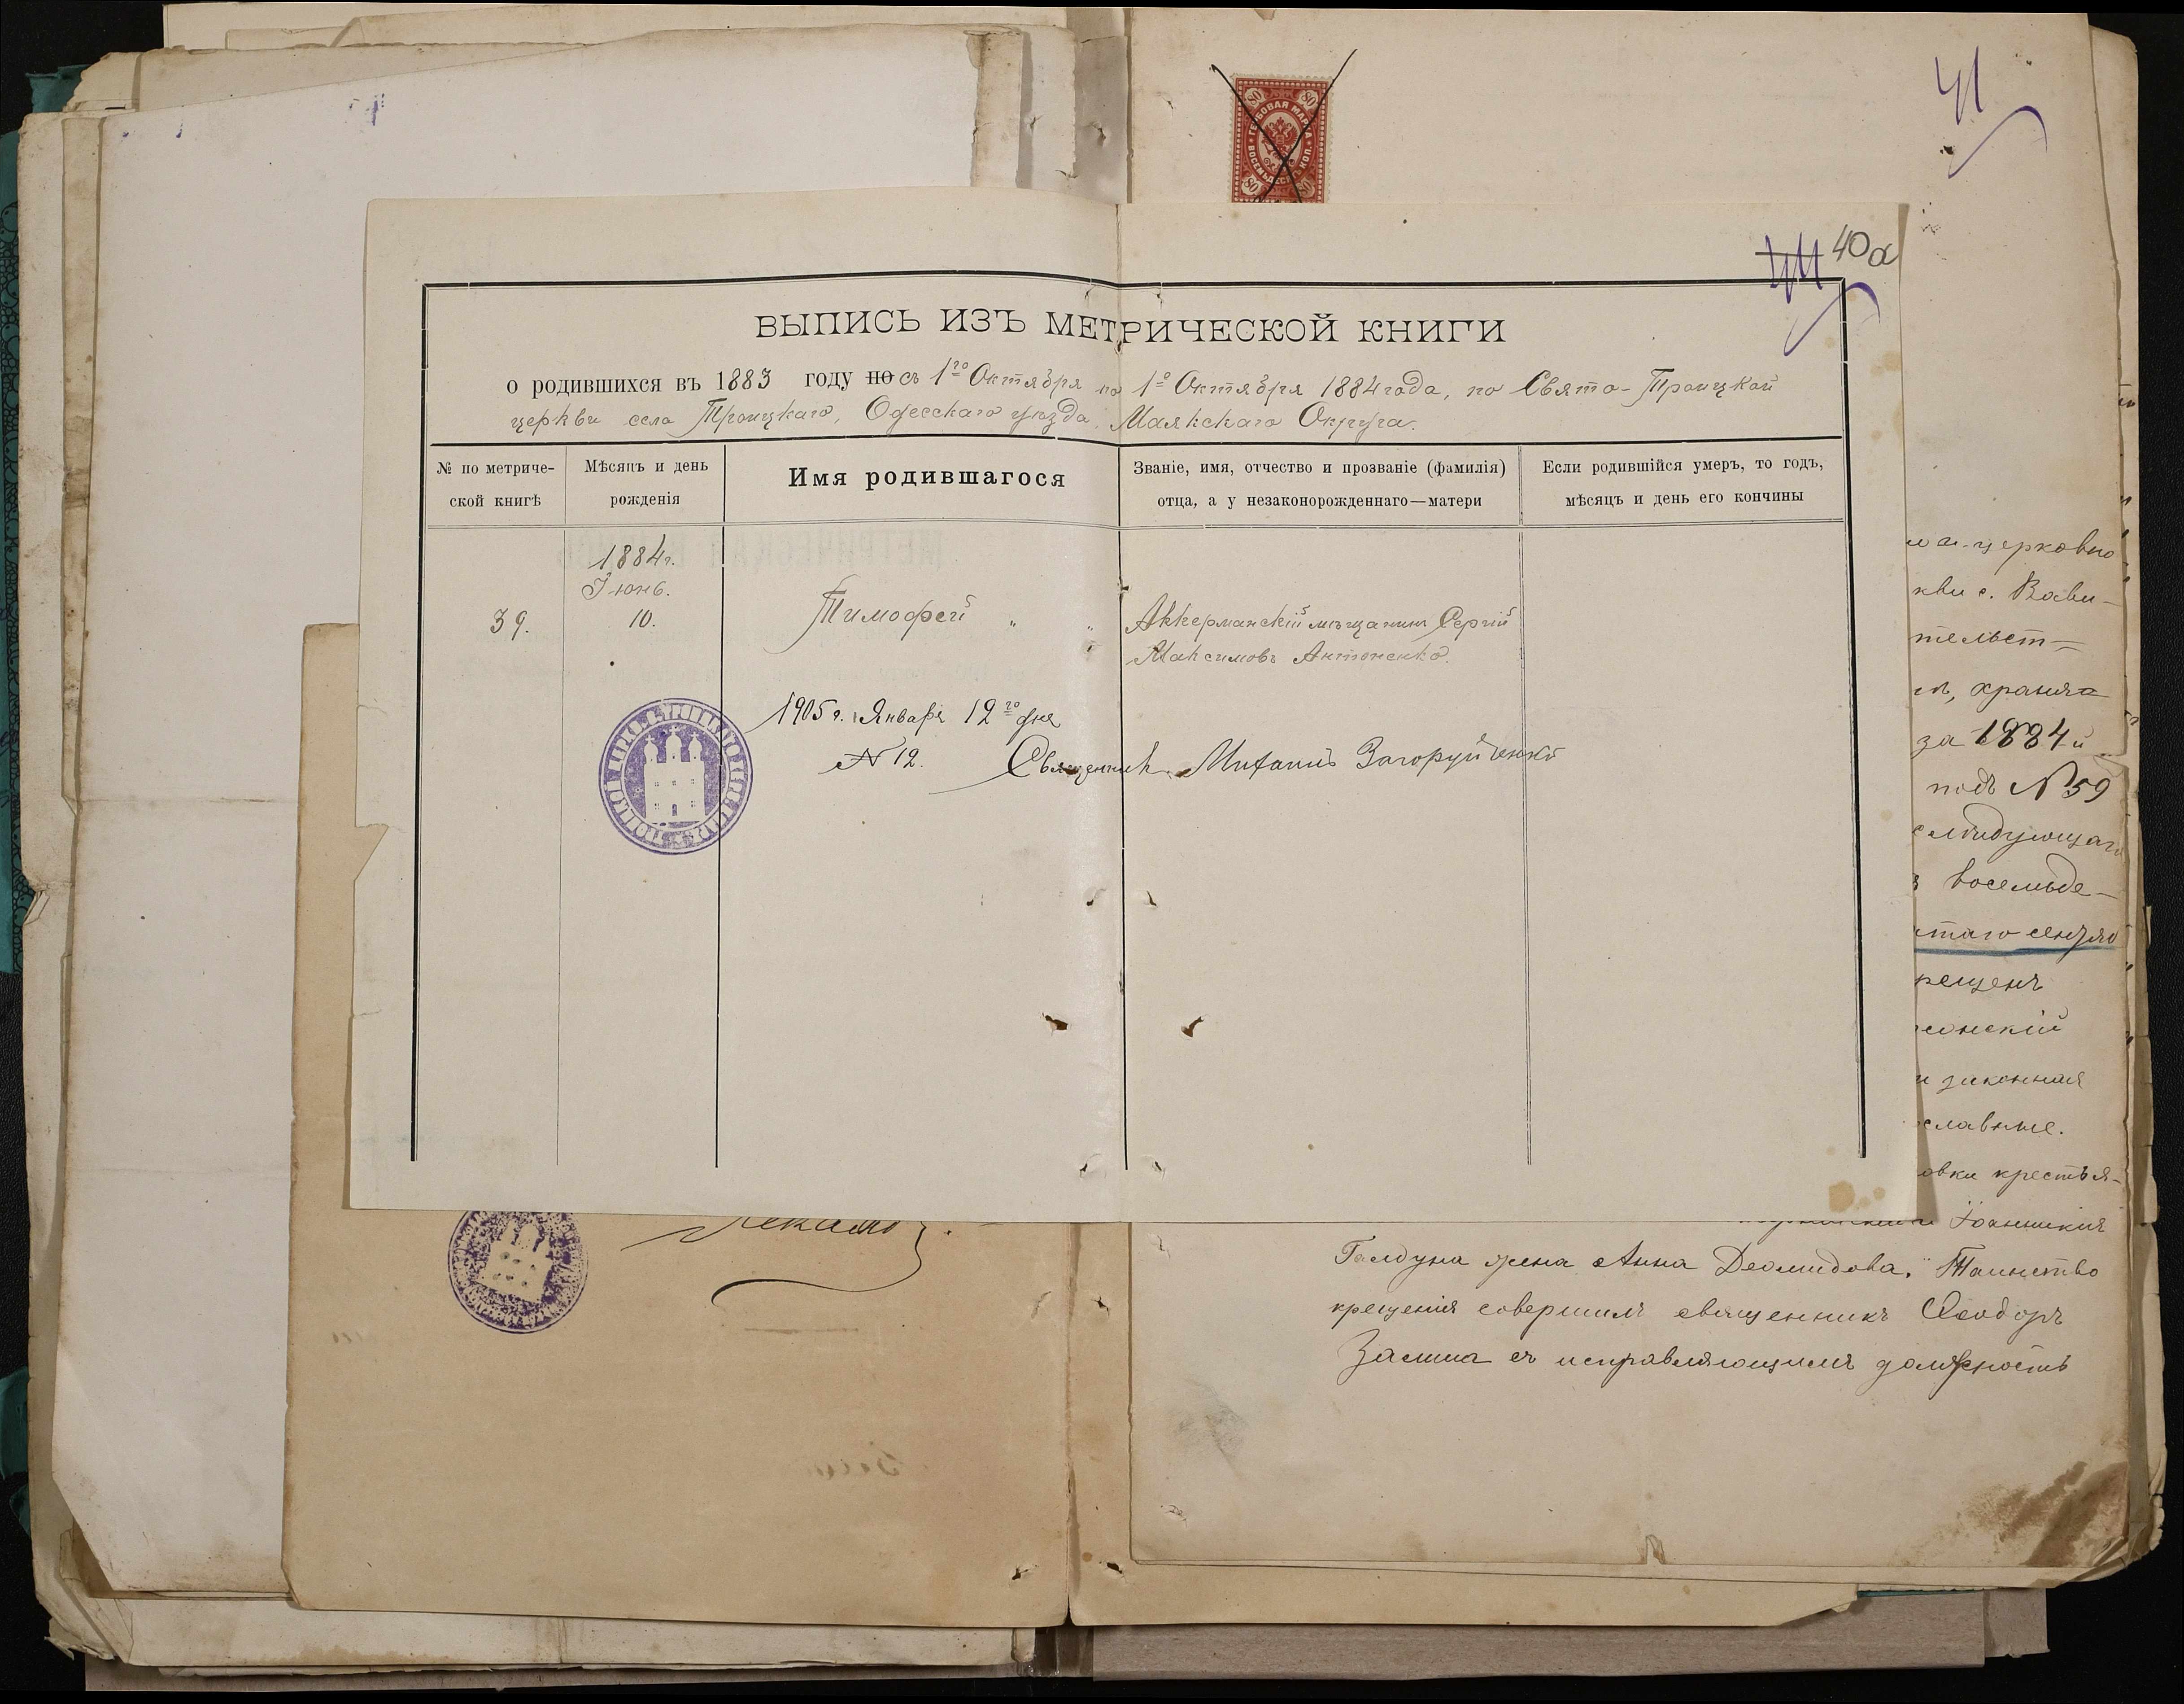 ГЕРБОВАЯ МАРКА
ВОСЕМЬДЕСЯТ КОП.
80 80
80 80
41
41 40а
ВЫПИСЬ ИЗЪ МЕТРИЧЕСКОЙ КНИГИ
о родившихся въ 1883 году по съ 1го Октября по 1е Октября 1884 года, по Свято-Троицкой
церкви села Троицкаго, Одесскаго уѣзда, Маякскаго Округа.
№ по метриче-
ской книгѣ
Мѣсяцъ и день
рожденія
Имя родившагося
Званіе, имя, отчество и прозваніе (фамилія)
отца, а у незаконорожденнаго—матери
Если родившійся умеръ, то годъ,
мѣсяцъ и день его кончины
1884г.
Іюнь.
39. 10. Тимофей „ „ Аккерманскій мѣщанинъ Сергій
Максимовъ Антоненко.
1905 г. Января 12го дня
№ 12. Священникъ Михаилъ Загоруйченко
церковно
кви с. Вави-
тельст-
храня
за 1884 й
подъ № 59
слѣдующаго
восемьде-
таго сентяб
рещенъ
сонскій
и законная
славные.
овки крестья-
Іоанникія
Галдуна жена Анна Деомидова. Таинство
крещенія совершилъ священникъ Ѳеодоръ
Защиа съ исправляющимъ должность